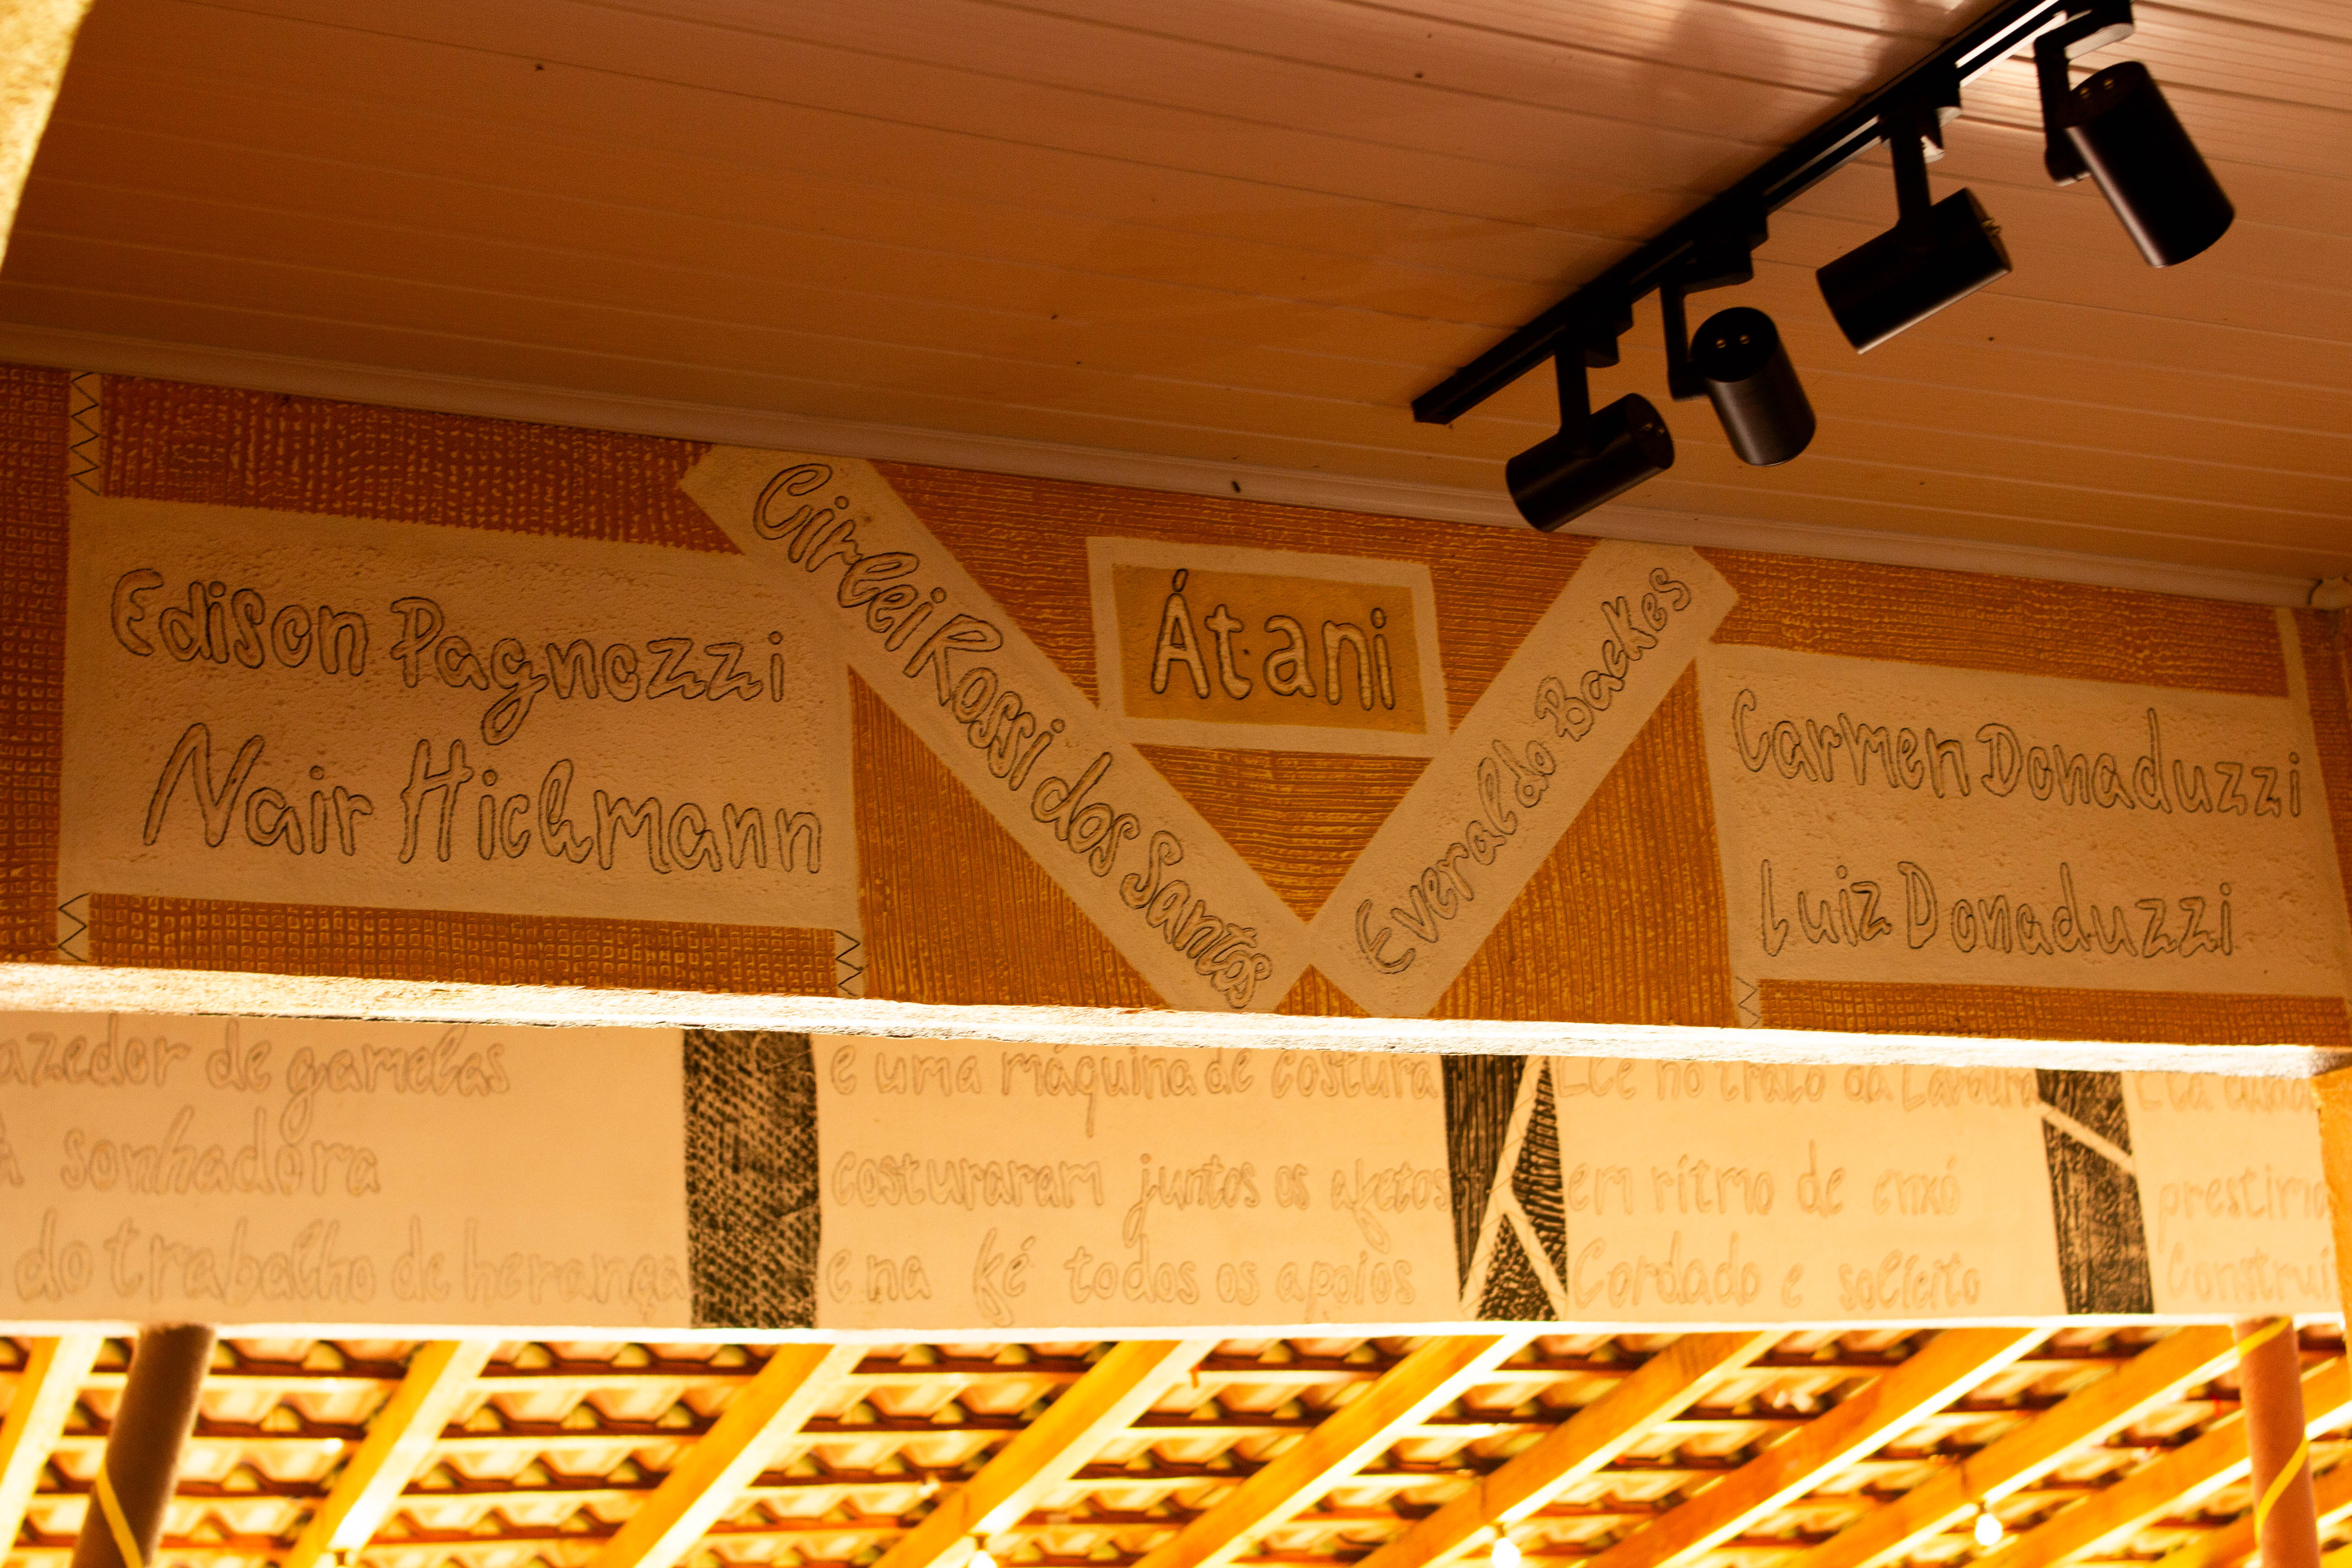 Edison Pagnozzi
Nair Hichmann
Cirlei Rossi dos Santos
Átani
Everaldo Backes
Carmen Donaduzzi
Luiz Donaduzzi
azedor de gamelas
A sonhadora
do trabalho de herança
e uma máquina de costura
costuraram juntos os afetos
e na fé todos os apoios
no trato da Lavoura
em ritmo de enxó
Cordado e solícito
Ela
prestim
Constru